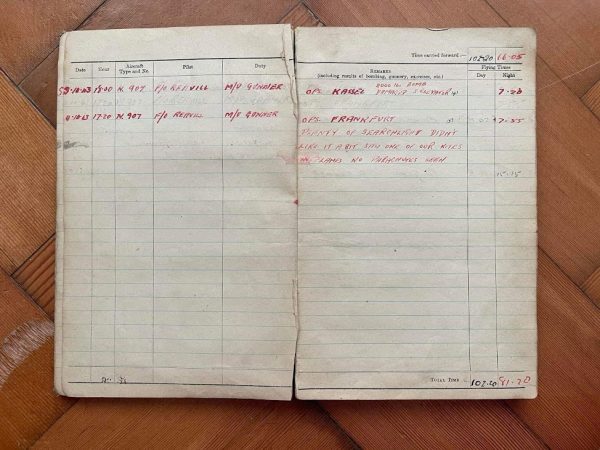 Time carried forward :— 102·20 66·05
Date Hour Aircraft Type and No. Pilot Duty
REMARKS (including results of bombing, gunnery, exercises, etc.) Flying Times Day Night
3·10·43 18·00 N. 907 F/O REAVILL M/U GUNNER
OPS KASSEL 8000 lb. BOMB
4·10·43 17·20 N. 907 F/O REAVILL M/U GUNNER
OPS FRANKFURT 7·55
PLENTY OF SEARCHLIGHT DIDN'T
LIKE IT A BIT SAW ONE OF OUR KITES
IN FLAMES NO PARACHUTES SEEN
15·15
TOTAL TIME 102·20 81·20